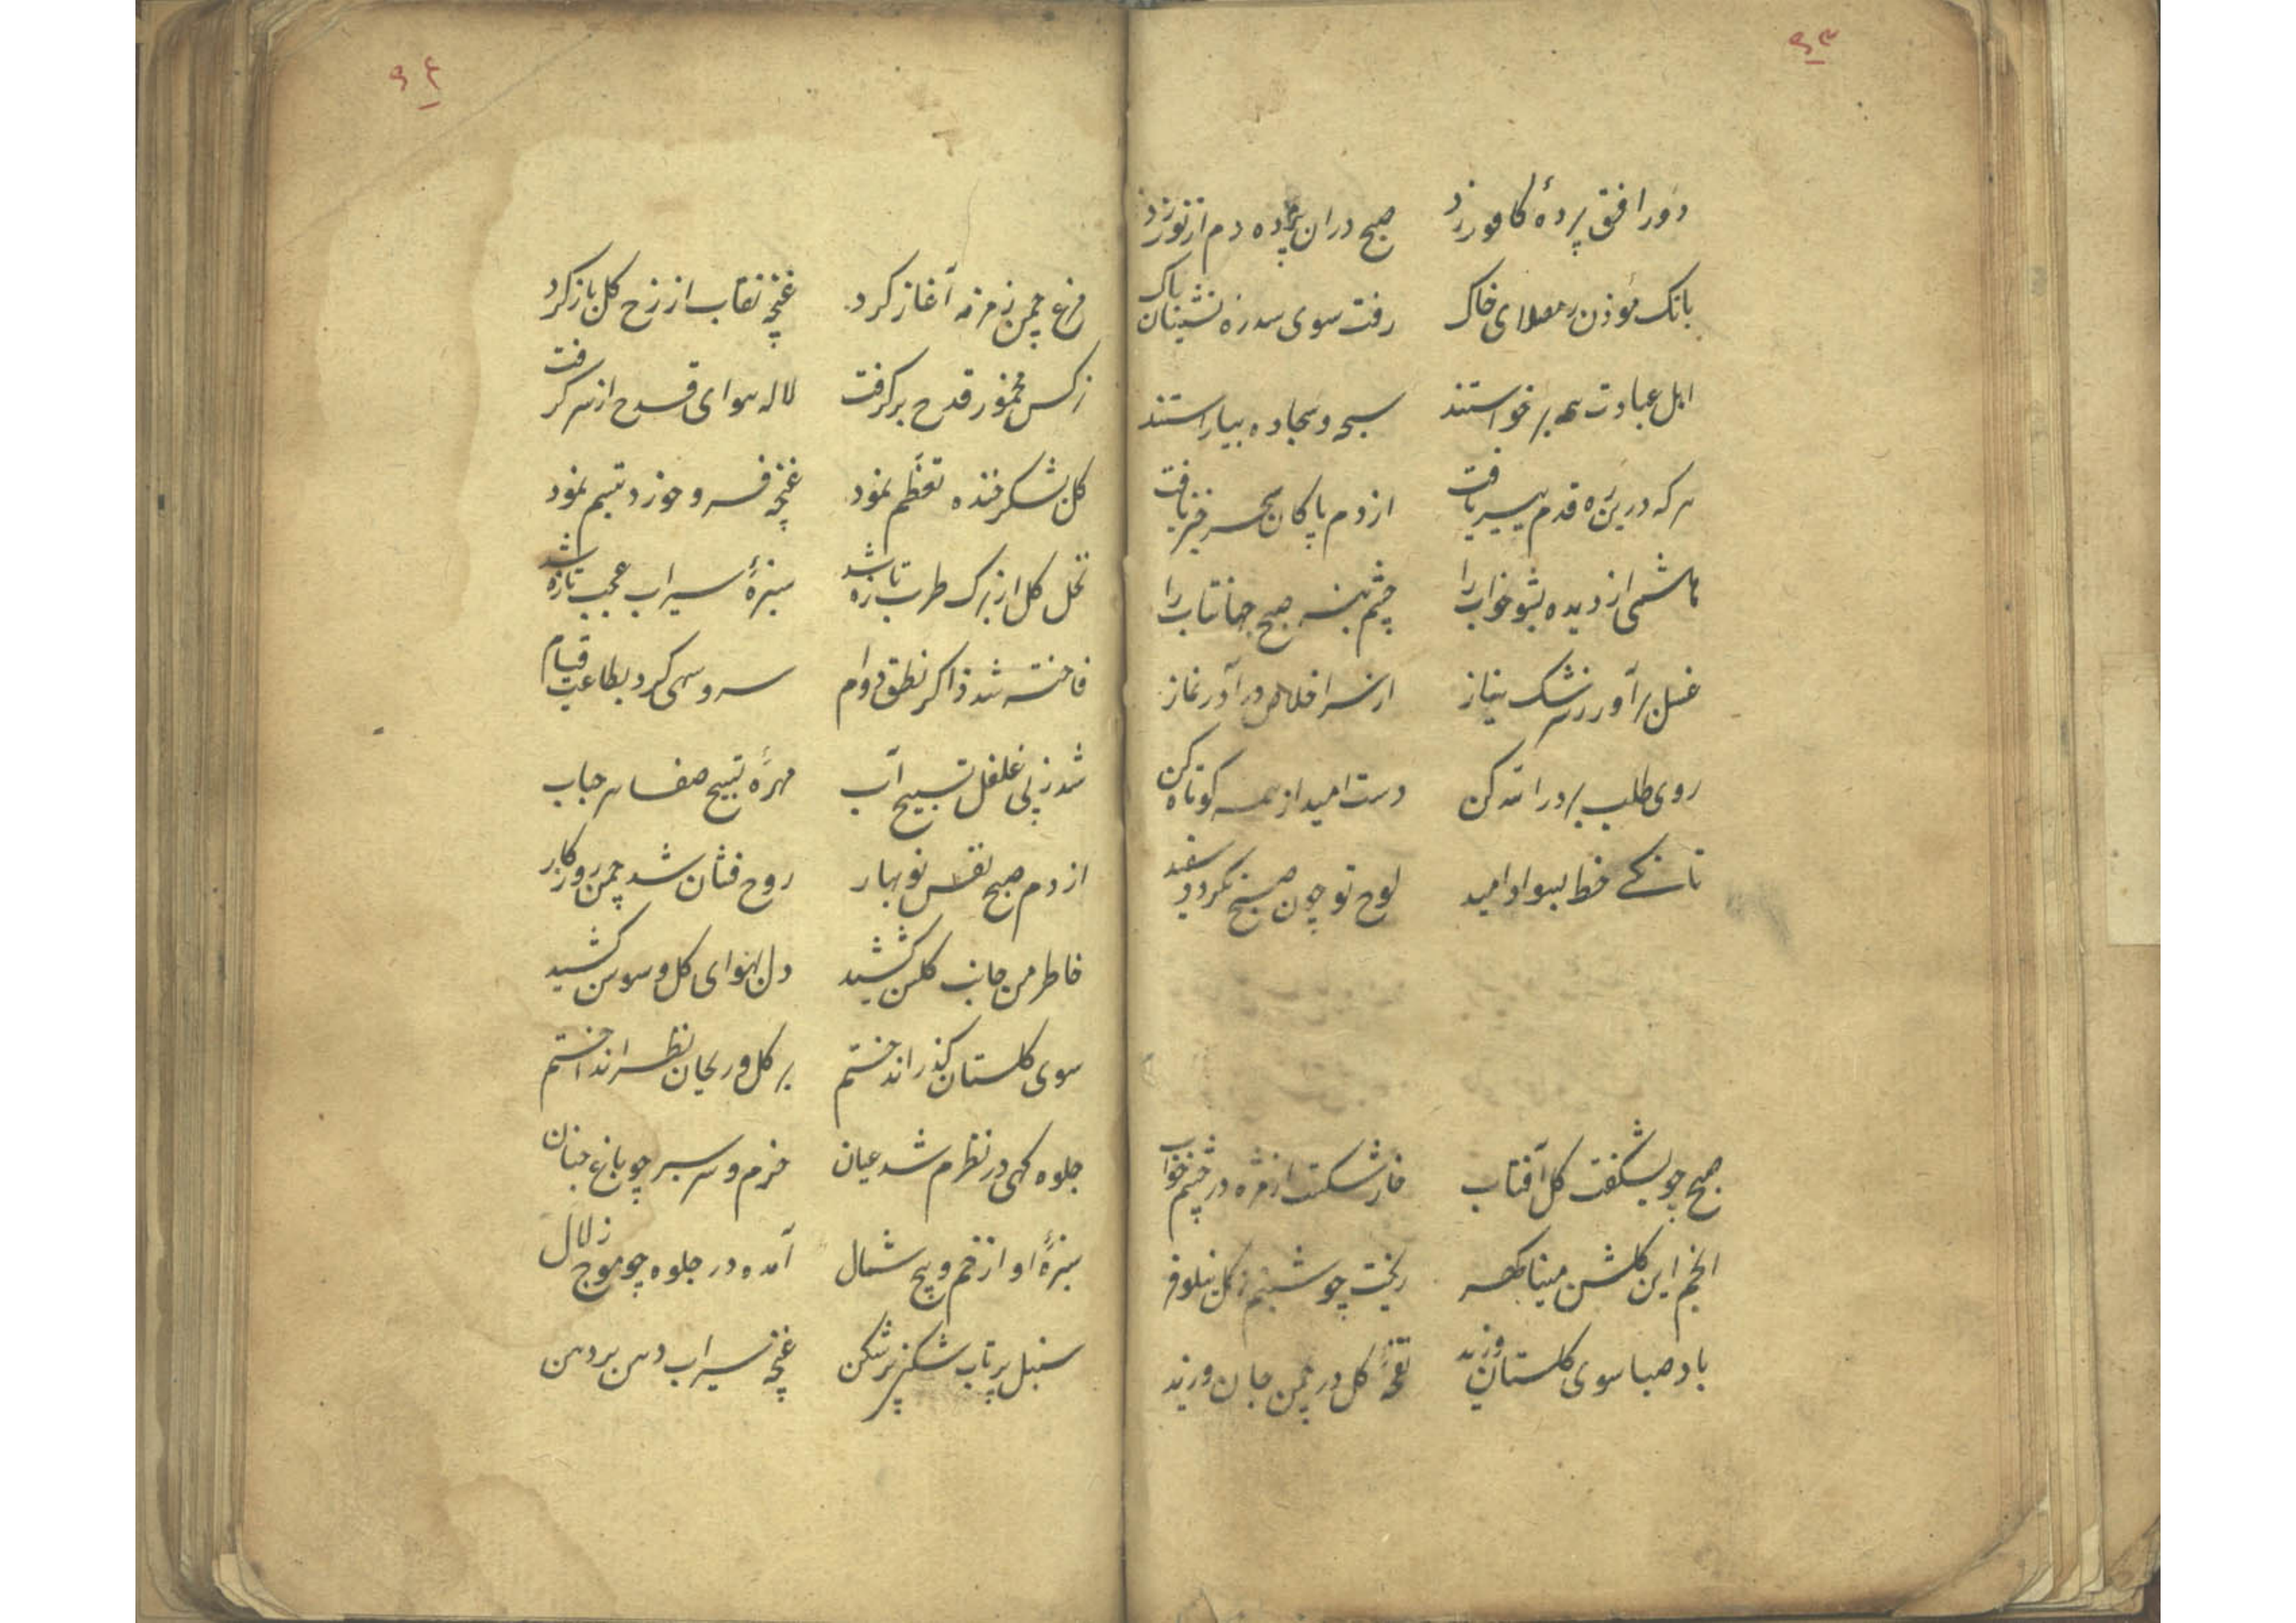 ۹۳
دور افق پردهٔ کافور زد صبح دران پرده دم از نور زد
بانک مؤذن ز مصلای خاک رفت سوی سدره نشینان پاک
اهل عبادت همه برخواستند سبحه و سجاده بیاراستند
هر که درین ره قدم سیر یافت از دم پاکان سحر خیز یافت
هاشمی از دیده بشو خواب را چشم بنه صبح جهانتاب را
غسل برآور ز سرشک نیاز از سر اخلاص درآ در نماز
روی طلب بر در الله کن دست امید از همه کوتاه کن
تا نکنے خط بسواد امید لوح تو چون صبح نکردد سفید
صبح چو بشکفت کل آفتاب خار شکست از مژه در چشم خواب
انجم این کلشن مینا ریخت چو شبنم ز کل نیلوفر
باد صبا سوی کلستان وزید نفحهٔ کل در چمن جان وزید
۹۴
مرغ چمن زمزمه آغاز کرد غنچه نقاب از رخ کل باز کرد
نرکس مخمور قدح برکرفت لاله هوای قدح از سر کرفت
کل بشکر خنده تعظم نمود غنچه فرو خورد تبسم نمود
نخل کل از برک طرب تازه شد سبزهٔ سیراب عجب تازه شد
فاخته شد ذاکر نطق دوام سرو سهی کرد بطاعت قیام
شد ز پی غلغل تسبیح آب مهرهٔ تسبیح صفا سر حباب
از دم صبح نفس نوبهار روح فشان شد چمن روزکار
خاطر من جانب کلشن کشید دل بهوای کل و سوسن کشید
سوی کلستان کذر انداختم بر کل و ریحان نظر انداختم
جلوه کهی در نظرم شد عیان خرم و سرسبز چو باغ جنان
سبزهٔ او از خم و پیچ شمال آمده در جلوه چو موج زلال
سنبل پرتاب شکن پر شکن غنچه سیراب دهن بر دهن